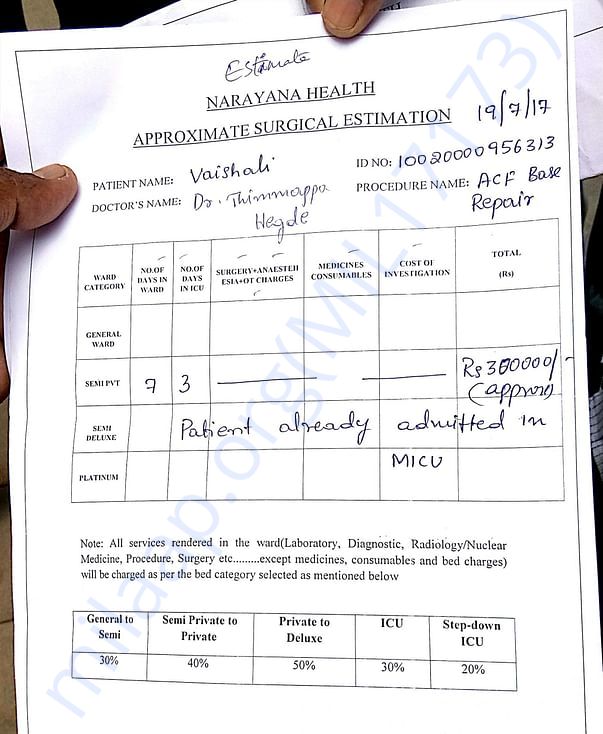 Estimate
NARAYANA HEALTH
APPROXIMATE SURGICAL ESTIMATION 19/7/17
PATIENT NAME: Vaishali ID NO: 10020000956313
DOCTOR'S NAME: Dr. Thimmappa Hegde PROCEDURE NAME: ACF Base Repair
WARD CATEGORY NO.OF DAYS IN WARD NO.OF DAYS IN ICU SURGERY+ANAESTEH ESIA+OT CHARGES MEDICINES CONSUMABLES COST OF INVESTIGATION TOTAL (Rs)
GENERAL WARD
SEMI PVT 7 3 Rs 300000/- (approx)
SEMI DELUXE Patient already admitted in
PLATINUM MICU
Note: All services rendered in the ward(Laboratory, Diagnostic, Radiology/Nuclear
Medicine, Procedure, Surgery etc.........except medicines, consumables and bed charges)
will be charged as per the bed category selected as mentioned below
General to Semi Semi Private to Private Private to Deluxe ICU Step-down ICU
30% 40% 50% 30% 20%
milaap.org(MIL17173)